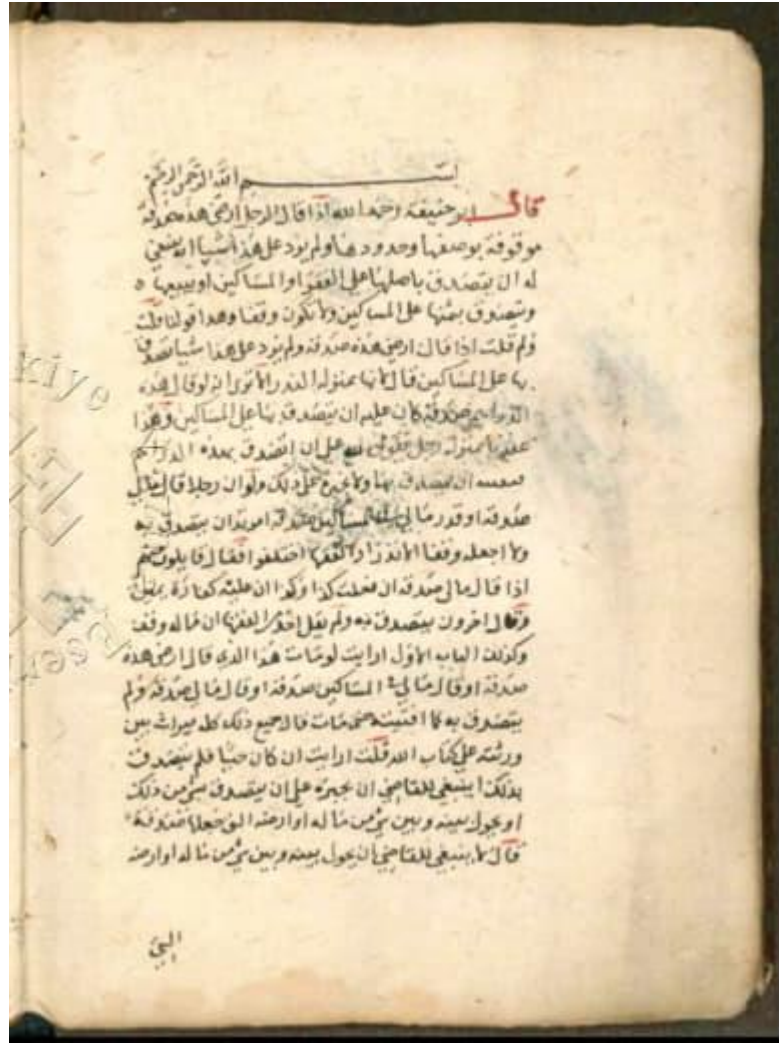 بسم الله الرحمن الرحيم
قال ابو حنيفة رحمه الله اذا قال الرجل ارضي هذه صدقة
موقوفة بوصفها وحدودها ولم يزد على هذا شيا انه ينبغي
له ان يتصدق باصلها على الفقرا والمساكين او يبيعها
ويتصدق بثمنها على المساكين ولا تكون وقفا وهذا قولنا قلت
ولم قلت اذا قال ارضي هذه صدقة ولم يزد على هذا شيا تصدق
بها على المساكين قال لانها بمنزلة النذر الا ترى انه لو قال هذه
الدراهم صدقة كان عليه ان يتصدق بها على المساكين وهذا
عندنا بمنزلة رجل يقول لله على ان اتصدق بهذه الدراهم
ان يتصدق بها ولا يجبر على ذلك ولو ان رجلا قال مالي
صدقة او قدر مالي في المساكين صدقة امر بان يتصدق به
ولا اجعله وقفا الا نذرا والفقها اختلفوا فقال قايلون منهم
اذا قال مالي صدقة ان فعلت كذا وكذا ان عليه كفارة يمين
وقال اخرون يتصدق به ولم يقل احد من الفقها ان ماله وقف
وكذلك الباب الاول ارايت لو مات هذا الذي قال ارضي هذه
صدقة او قال مالي في المساكين صدقة او قال مالي صدقة ولم
يتصدق به كما افتيته حتى مات قال جميع ذلك كله ميراث بين
ورثته على كتاب الله قلت ارايت ان كان حيا فلم يتصدق
بذلك اينبغي للقاضي ان يجبره على ان يتصدق بشي من ذلك
او يحول بينه وبين شي من ماله او ارضه التي جعلها صدقة
قال لا ينبغي للقاضي ان يحول بينه وبين شي من ماله او ارضه
التي